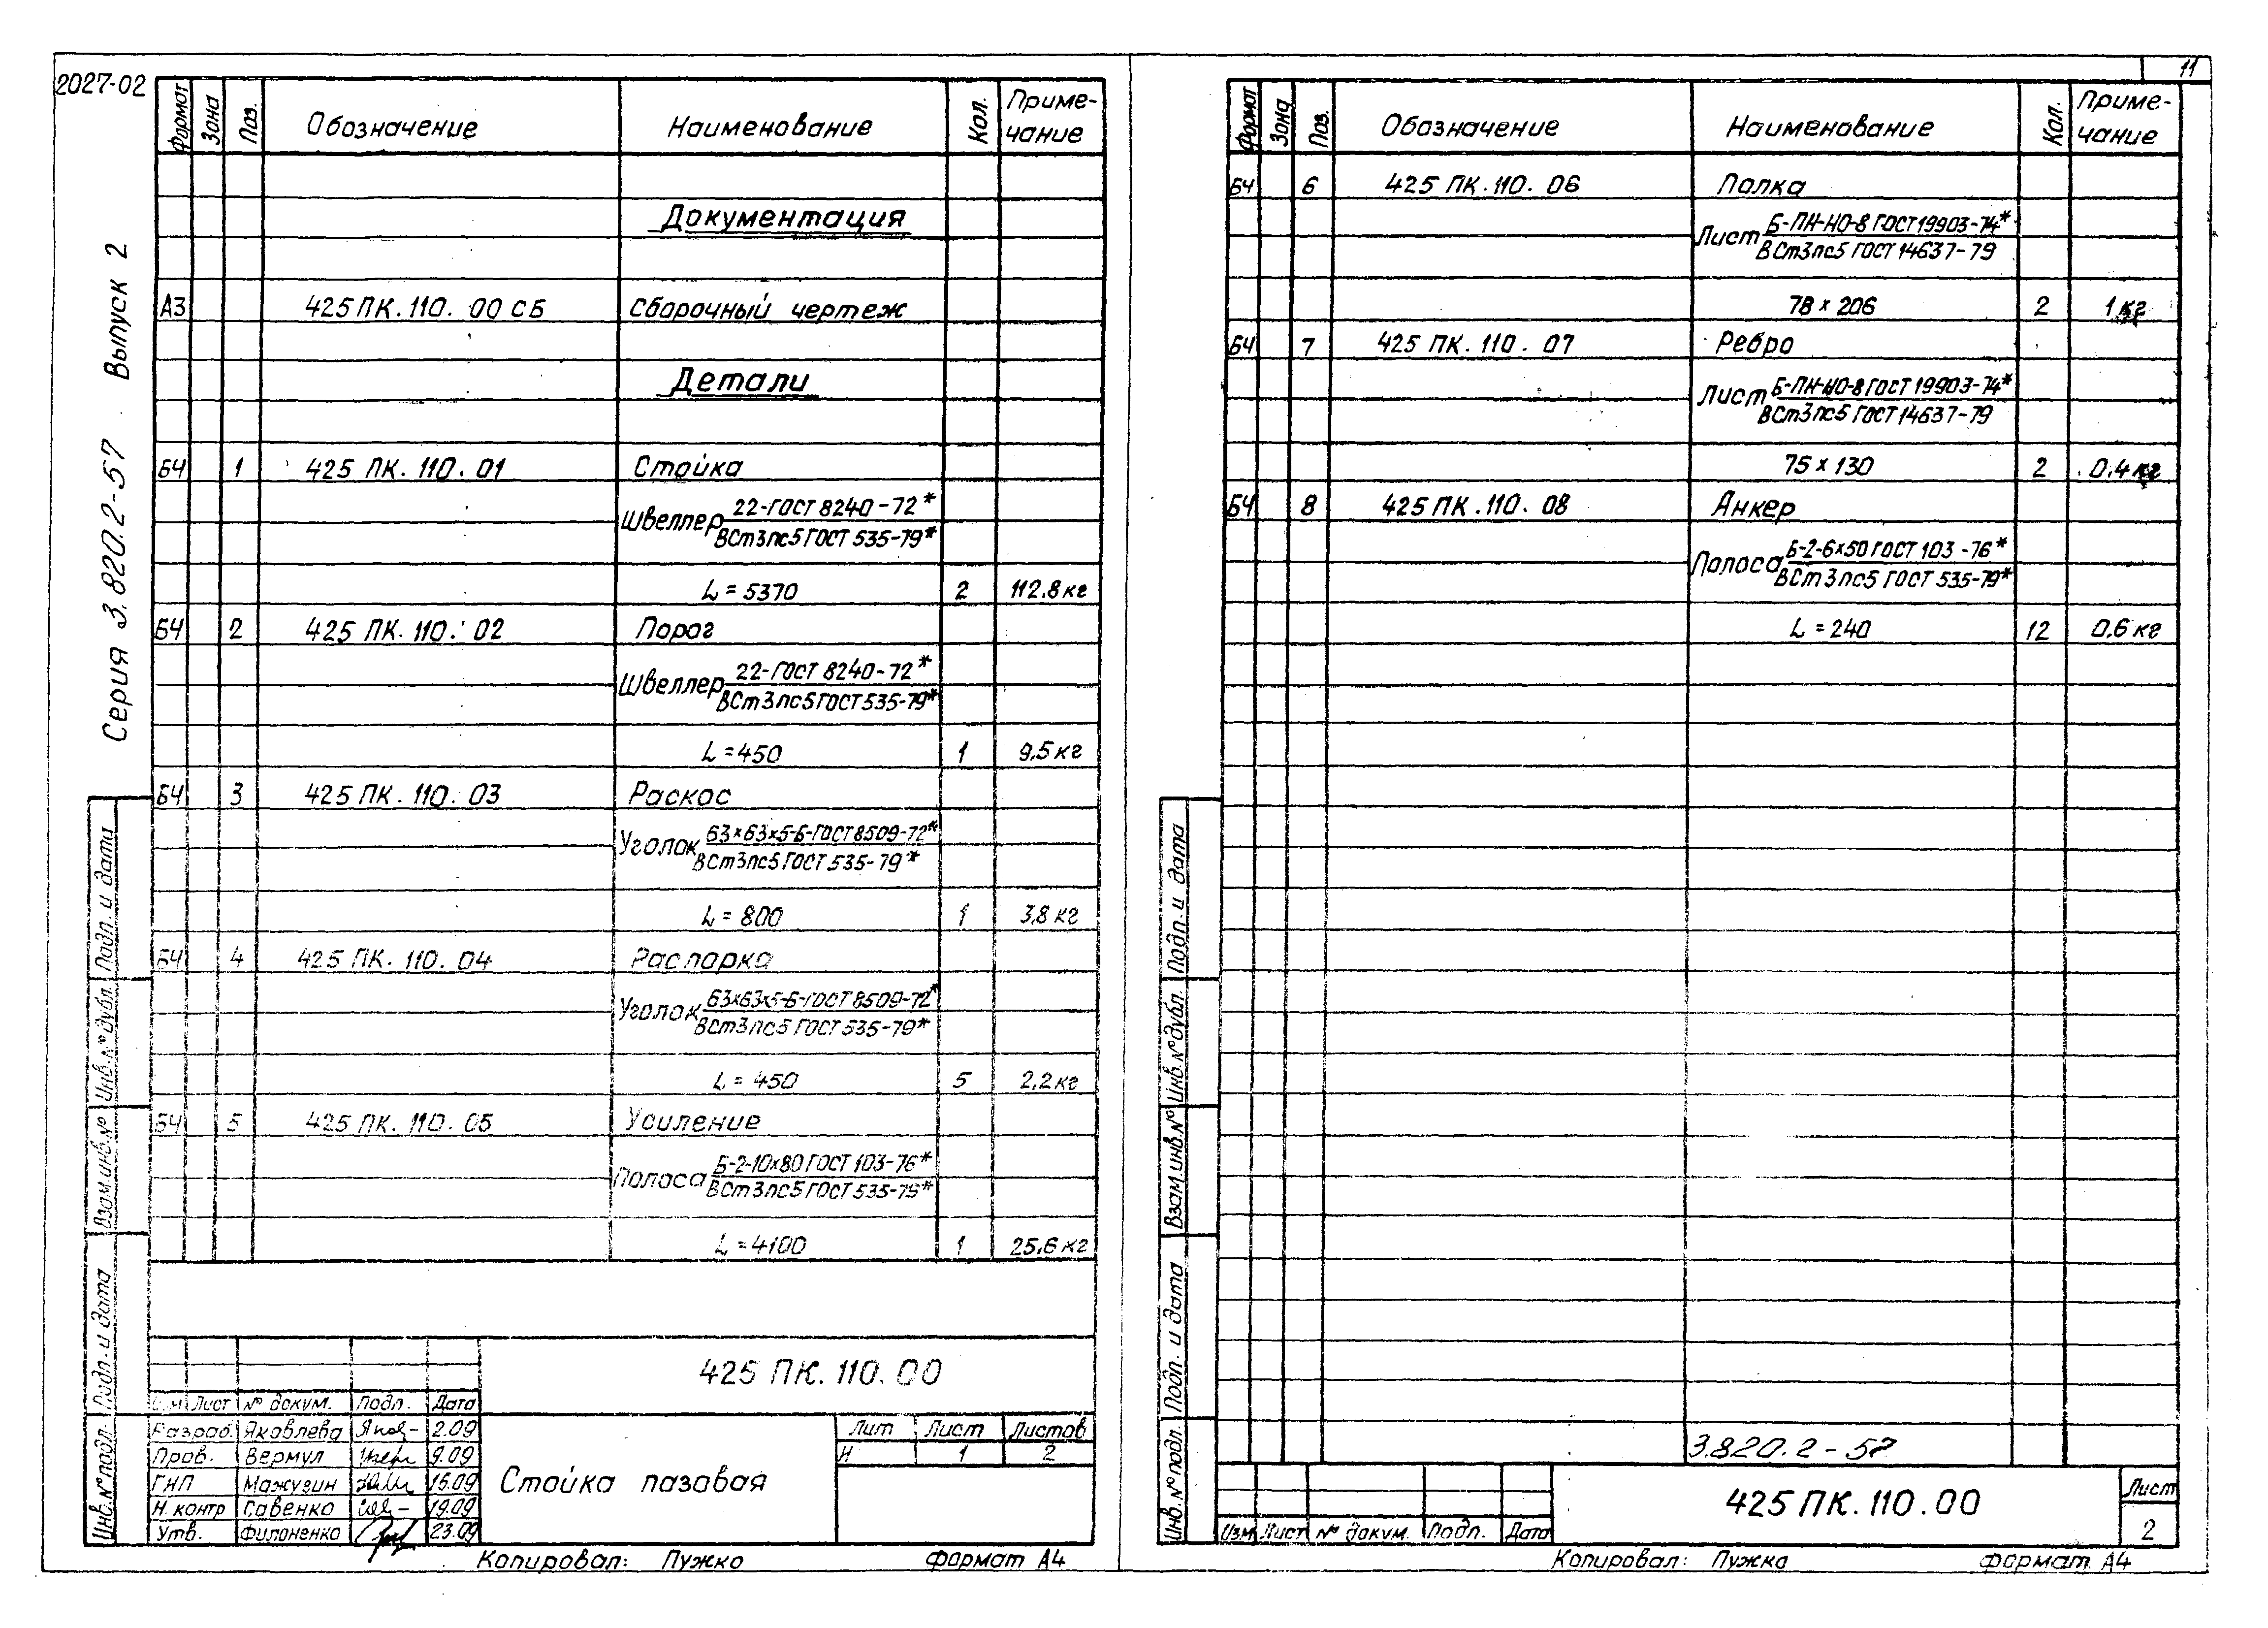 2027-02
Серия 3.820.2-57 Выпуск 2
Формат Зона Поз. Обозначение Наименование Кол. Приме-
чание
Документация
А3 425 ПК.110.00 СБ Сборочный чертеж
Детали
БЧ 1 425 ПК.110.01 Стойка
Швеллер 22-ГОСТ 8240-72*
ВСт3пс5 ГОСТ 535-79*
L = 5370 2 112,8 кг
БЧ 2 425 ПК.110.02 Порог
Швеллер 22-ГОСТ 8240-72*
ВСт3пс5 ГОСТ 535-79*
L = 450 1 9,5 кг
БЧ 3 425 ПК.110.03 Раскос
Уголок 63×63×5-Б-ГОСТ 8509-72*
ВСт3пс5 ГОСТ 535-79*
L = 800 1 3,8 кг
БЧ 4 425 ПК.110.04 Распорка
Уголок 63×63×5-Б-ГОСТ 8509-72*
ВСт3пс5 ГОСТ 535-79*
L = 450 5 2,2 кг
БЧ 5 425 ПК.110.05 Усиление
Полоса Б-2-10×80 ГОСТ 103-76*
ВСт3пс5 ГОСТ 535-79*
L = 4100 1 25,6 кг
Подп. и дата
Инв. № дубл.
Взам. инв. №
Подп. и дата
Инв. № подл.
425 ПК.110.00
Изм Лист № докум. Подп. Дата
Разраб. Яковлева 2.09
Пров. Вермул 9.09
ГИП Мажугин 15.09
Н. контр Савенко 19.09
Утв. Филоненко 23.09
Стойка пазовая
Лит Лист Листов
И 1 2
Копировал: Пужко формат А4
11
Формат Зона Поз. Обозначение Наименование Кол. Приме-
чание
БЧ 6 425 ПК.110.06 Полка
Лист Б-ПН-НО-8 ГОСТ 19903-74*
ВСт3пс5 ГОСТ 14637-79
78 × 206 2 1 кг
БЧ 7 425 ПК.110.07 Ребро
Лист Б-ПН-НО-8 ГОСТ 19903-74*
ВСт3пс5 ГОСТ 14637-79
75 × 130 2 0,4 кг
БЧ 8 425 ПК.110.08 Анкер
Полоса Б-2-6×50 ГОСТ 103-76*
ВСт3пс5 ГОСТ 535-79*
L = 240 12 0,6 кг
Подп. и дата
Инв. № дубл.
Взам. инв. №
Подп. и дата
Инв. № подл.
3.820.2-57
Изм Лист № докум. Подп. Дата
425 ПК.110.00
Лист
2
Копировал: Пужко формат А4